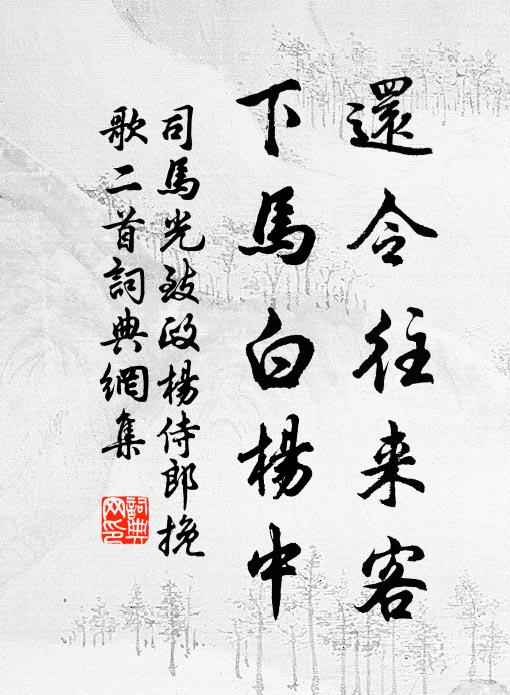 還令往来客
下馬白楊中
司馬光致政楊侍郎挽
歌二首詞典網集
詞典
网印